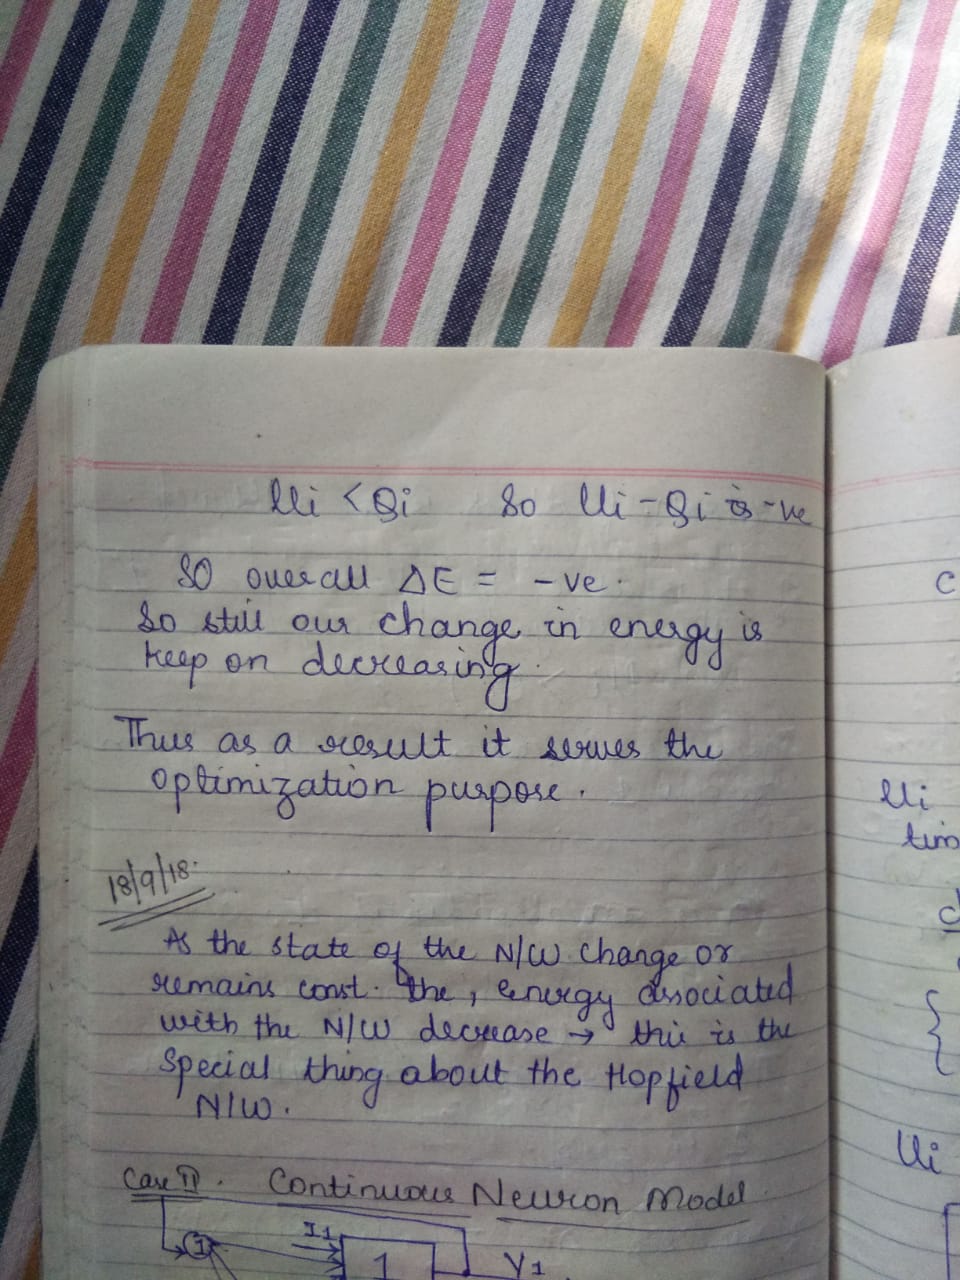 Ui < θi So Ui - θi is -ve
SO overall ΔE = -ve.
So still our change in energy is
keep on decreasing.
Thus as a result it serves the
optimization purpose.
18/9/18.
As the state of the N/W change or
remains const. the, energy associated
with the N/W decrease → this is the
special thing about the Hopfield
N/W.
Case II. Continuous Neuron Model.
1 I1 1 Y1
c
Ui
tim
Ui